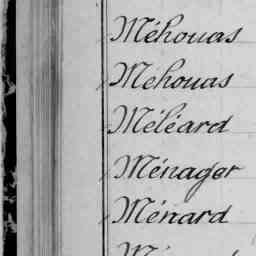 Méhouas
Mehouas
Méléard
Ménager
Ménard